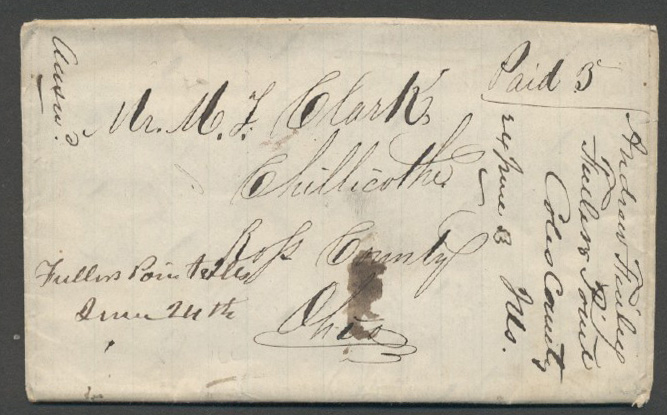 Paid 5
Mr. M. F. Clark
Chillicothe
Ross County
Ohio
Fullers Point Ills
June 24th
Answd
Andrew
Fullers Point
Coles County
Ills.
24 June